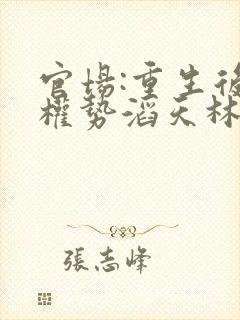 官場:重生後
權勢滔天林
張志峰